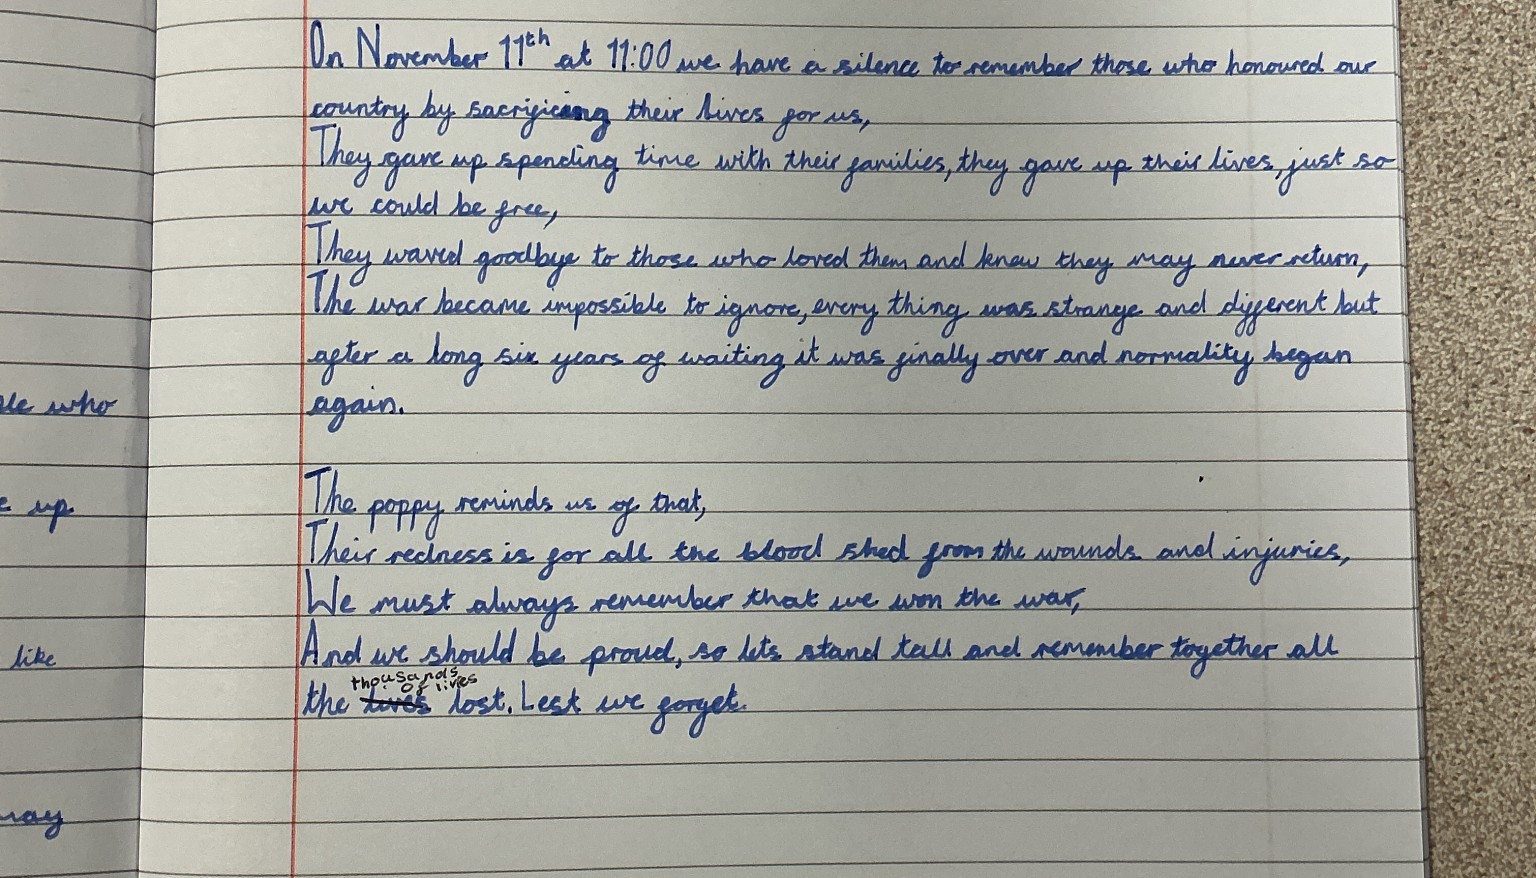 On November 11th at 11:00 we have a silence to remember those who honoured our
country by sacrificing their lives for us,
They gave up spending time with their families, they gave up their lives, just so
we could be free,
They waved goodbye to those who loved them and knew they may never return,
The war became impossible to ignore, every thing was strange and different but
after a long six years of waiting it was finally over and normality began
le who
again.
The poppy reminds us of that,
e up
Their redness is for all the blood shed from the wounds and injuries,
We must always remember that we won the war,
And we should be proud, so lets stand tall and remember together all
like
thousands
of lives
the lives lost. Lest we forget.
may